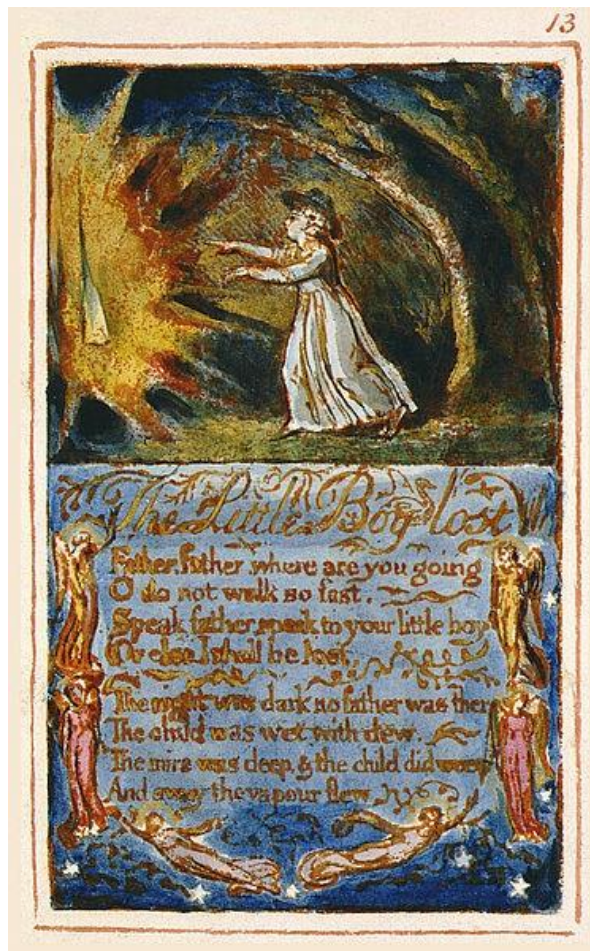 13
The Little Boy lost
Father, father where are you going
O do not walk so fast.
Speak father, speak to your little boy
Or else I shall be lost,
The night was dark no father was there
The child was wet with dew.
The mire was deep, & the child did weep
And away the vapour flew.